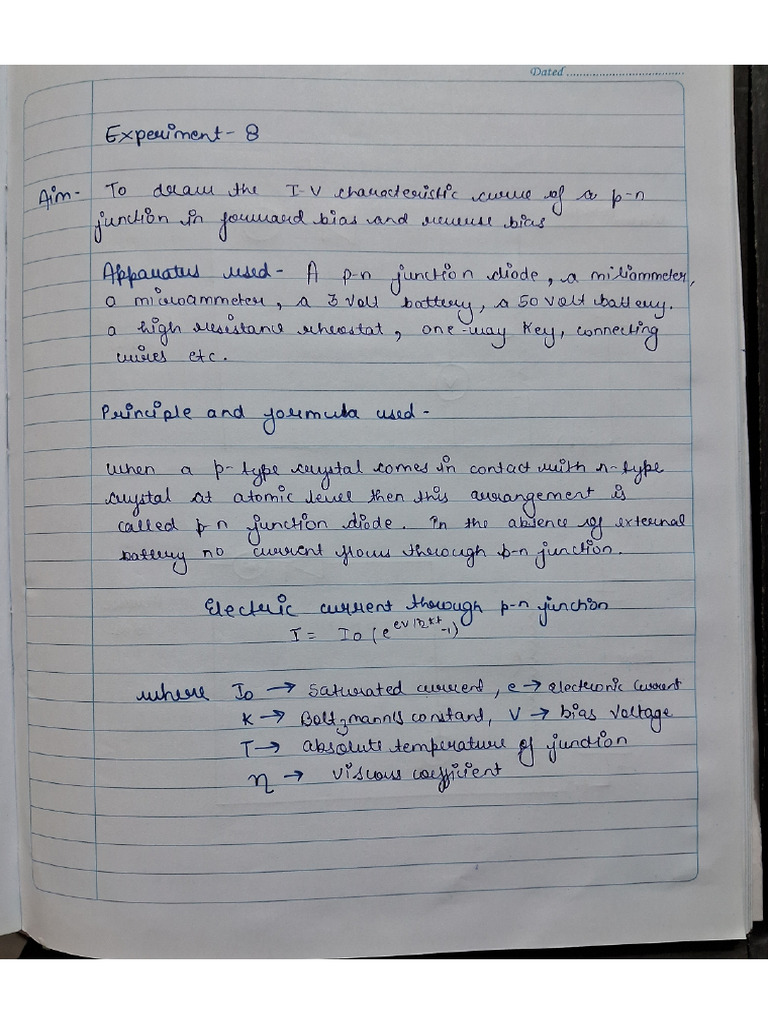 Dated
Experiment - 8
Aim - To draw the I-V characteristic curve of a p-n
junction in forward bias and reverse bias
Apparatus used - A p-n junction diode, a miliammeter,
a microammeter, a 3 volt battery, a 50 volt battery.
a high resistance rheostat, one-way key, connecting
wires etc.
Principle and formula used -
When a p-type crystal comes in contact with n-type
crystal at atomic level then this arrangement is
called p-n junction diode. In the absence of external
battery no current flows through p-n junction.
Electric current through p-n junction
I = I0 (e^eV/ηkt -1)
where I0 → saturated current, e → electronic current
K → Boltzmann's constant, V → bias voltage
T → absolute temperature of junction
η → viscous coefficient